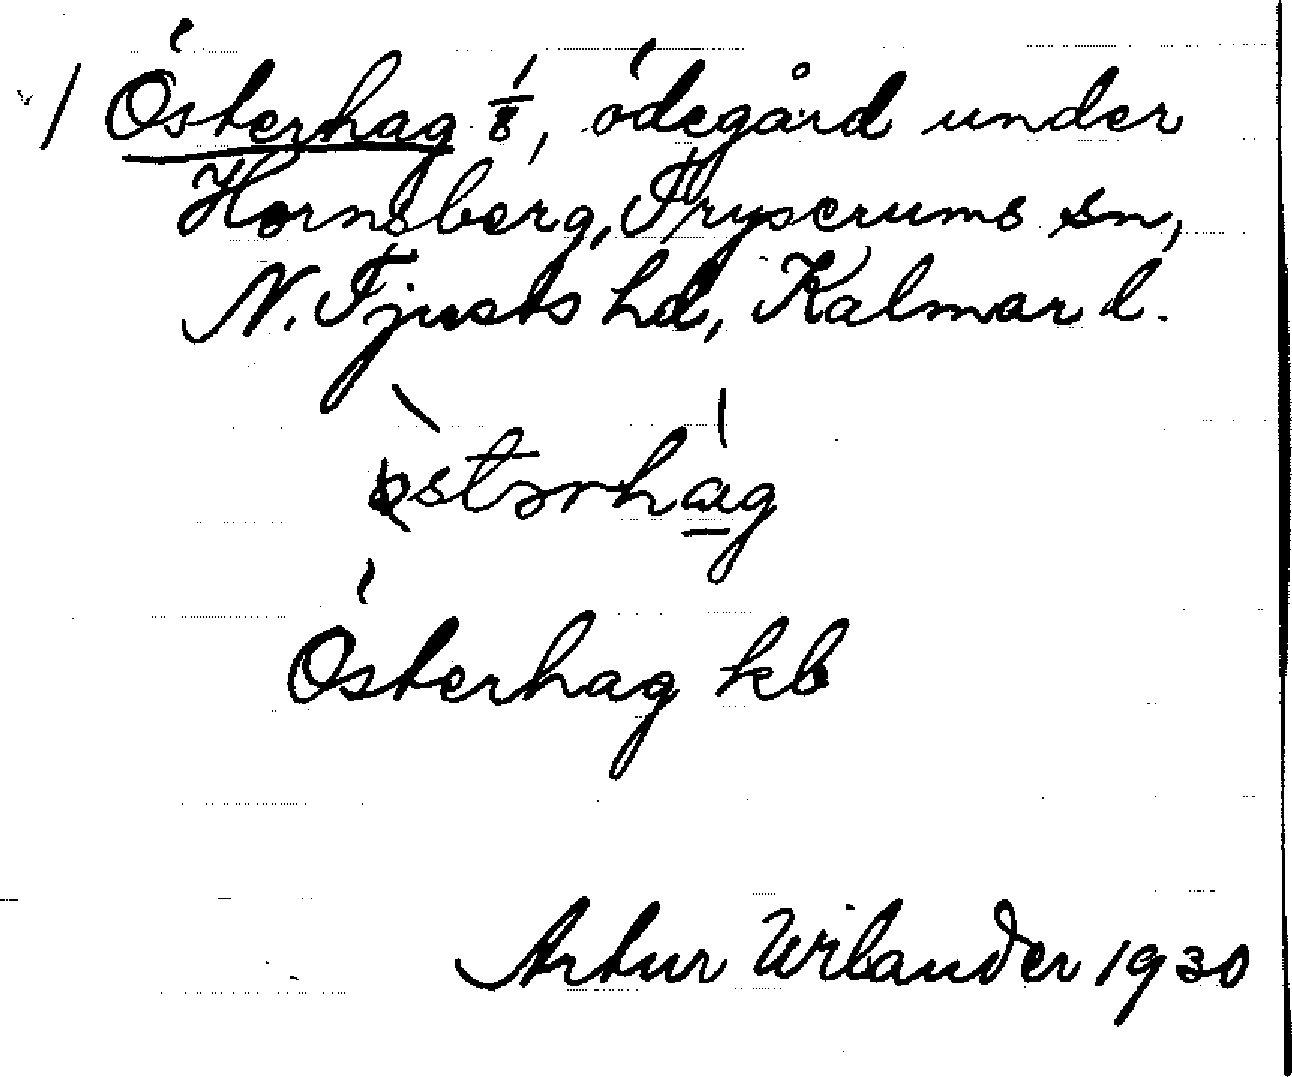 1) Österhag 1/8, ödegård under
Hornsberg, Tryserums sn,
N. Tjusts hd, Kalmar l.
ǫ̀stərhág
Österhag kb
Artur Wilander 1930